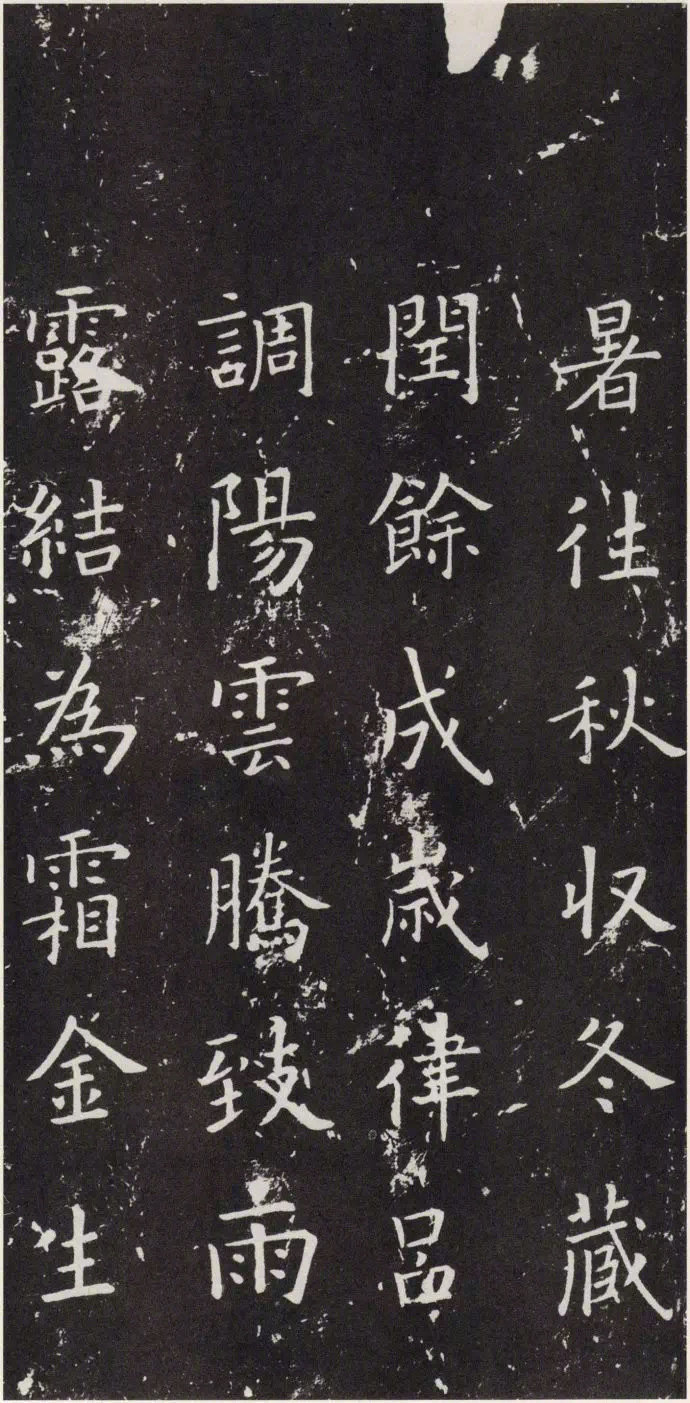 暑往秋収冬藏
閏餘成歳律呂
調陽雲騰致雨
露結為霜金生